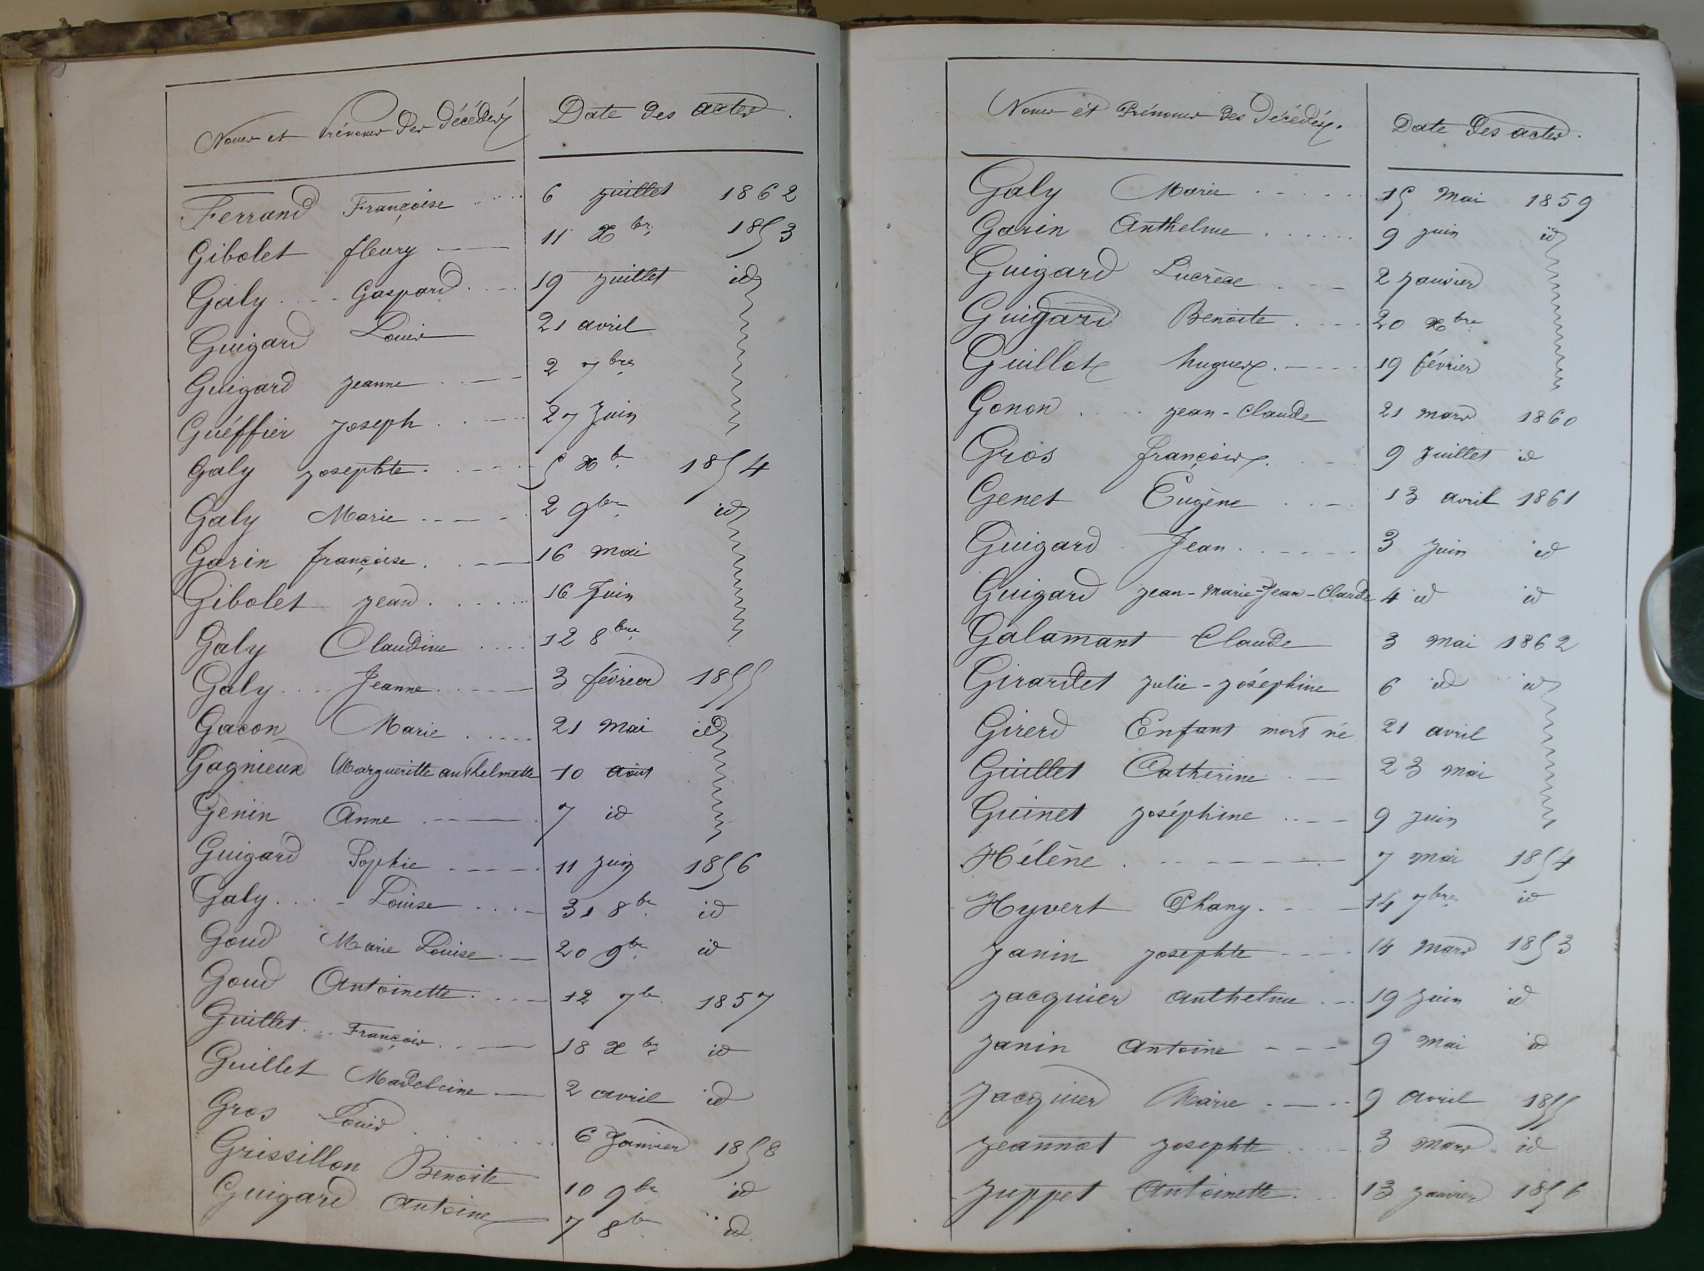 Noms et Prénoms des Décédés Date des actes.
Ferrand Françoise 6 juillet 1862
Gibolet fleury 11 Xbre 1853
Galy Gaspard 19 juillet id
Guigard Louis 21 avril
Guigard jeanne 2 7bre
Guéffier joseph 27 Juin
Galy josephte 5 Xbre 1854
Galy Marie 2 9bre id
Garin françoise 16 mai
Gibolet jean 16 Juin
Galy Claudine 12 8bre
Galy Jeanne 3 février 1855
Gacon Marie 21 mai id
Gagnieux Margueritte anthelmette 10 août
Genin Anne 7 id
Guigard Sophie 11 juin 1856
Galy Louise 31 8bre id
Goud Marie Louise 20 9bre id
Goud Antoinette 12 7bre 1857
Guillet François 18 Xbre id
Guillet Madeleine 2 avril id
Gros Louis 6 Janvier 1858
Grissillon Benoite 10 9bre id
Guigard Antoine 7 8bre id
Noms et Prénoms des Décédés. Date des actes.
Galy Marie 15 Mai 1859
Garin Anthelme 9 juin id
Guigard Lucrèce 2 janvier
Guigard Benoite 20 Xbre
Guillot hugues 19 février
Gonon jean-Claude 21 mars 1860
Gros françois 9 Juillet id
Genet Eugène 13 avril 1861
Guigard Jean 3 juin id
Guigard jean-Marie-Jean-Claude 4 id id
Galamant Claude 3 mai 1862
Girardet julie-joséphine 6 id id
Girerd Enfant mort né 21 avril
Guillet Catherine 23 mai
Guinet joséphine 9 juin
Hélène 7 mai 1854
Hyvert Phany 14 7bre id
Janin josephte 14 mars 1853
Jacquier anthelme 19 juin id
Janin Antoine 9 mai id
Jacquier Marie 9 avril 1855
Jeannot josephte 3 mars id
Juppet Antoinette 13 janvier 1856